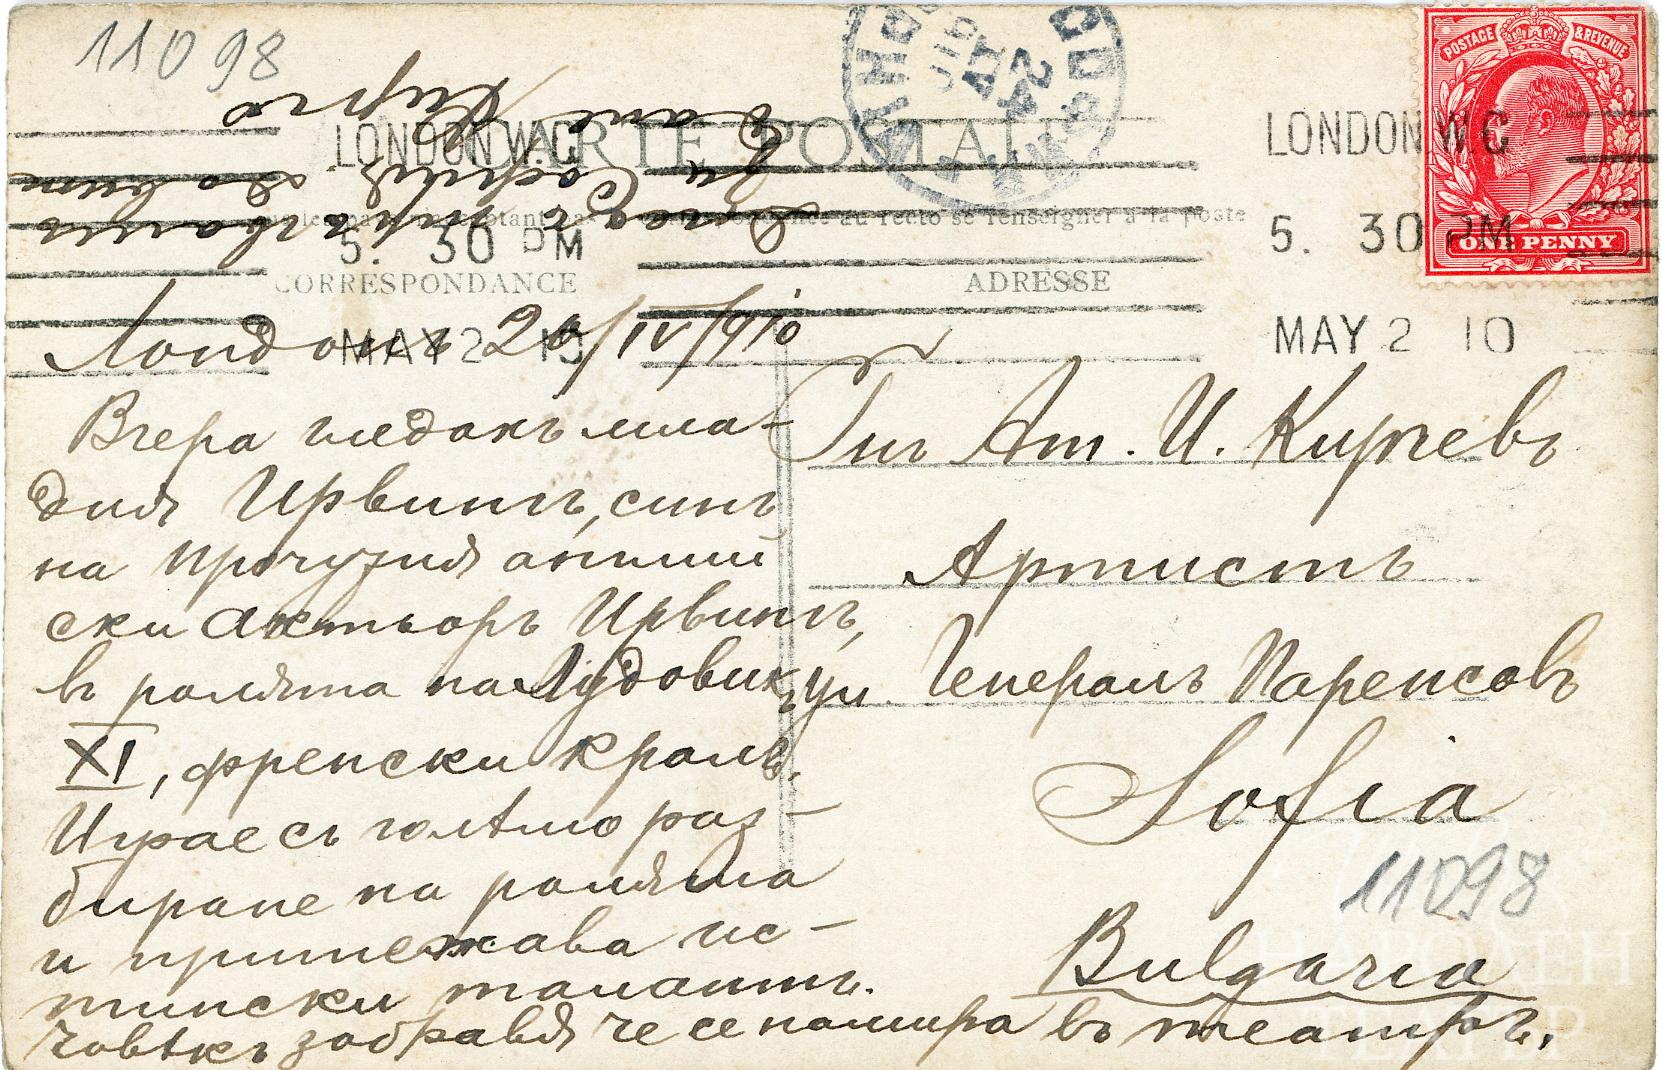 11098
CARTE POSTALE
LONDON W.C
5. 30 PM
MAY 2 10
LONDON W.C
5. 30 PM
MAY 2 10
POSTAGE & REVENUE
ONE PENNY
au recto se renseigner à la poste
CORRESPONDANCE
ADRESSE
Лондонъ 20/IV/910
Вчера гледахъ мла-
дия Ирвингъ, синъ
на прочутия англий
ски актьоръ Ирвингъ,
въ ролята на Лудовикъ
XI, френски краль.
Играе съ голѣмо раз-
биране на ролята
и притежава ис-
тински талантъ.
Човѣкъ забравя че се намира въ театръ.
Г-нъ Ат. И. Кирчевъ
Артистъ
ул. Генералъ Паренсовъ
Sofia
11098
Bulgaria
НАРОДЕН
ТЕАТЪР